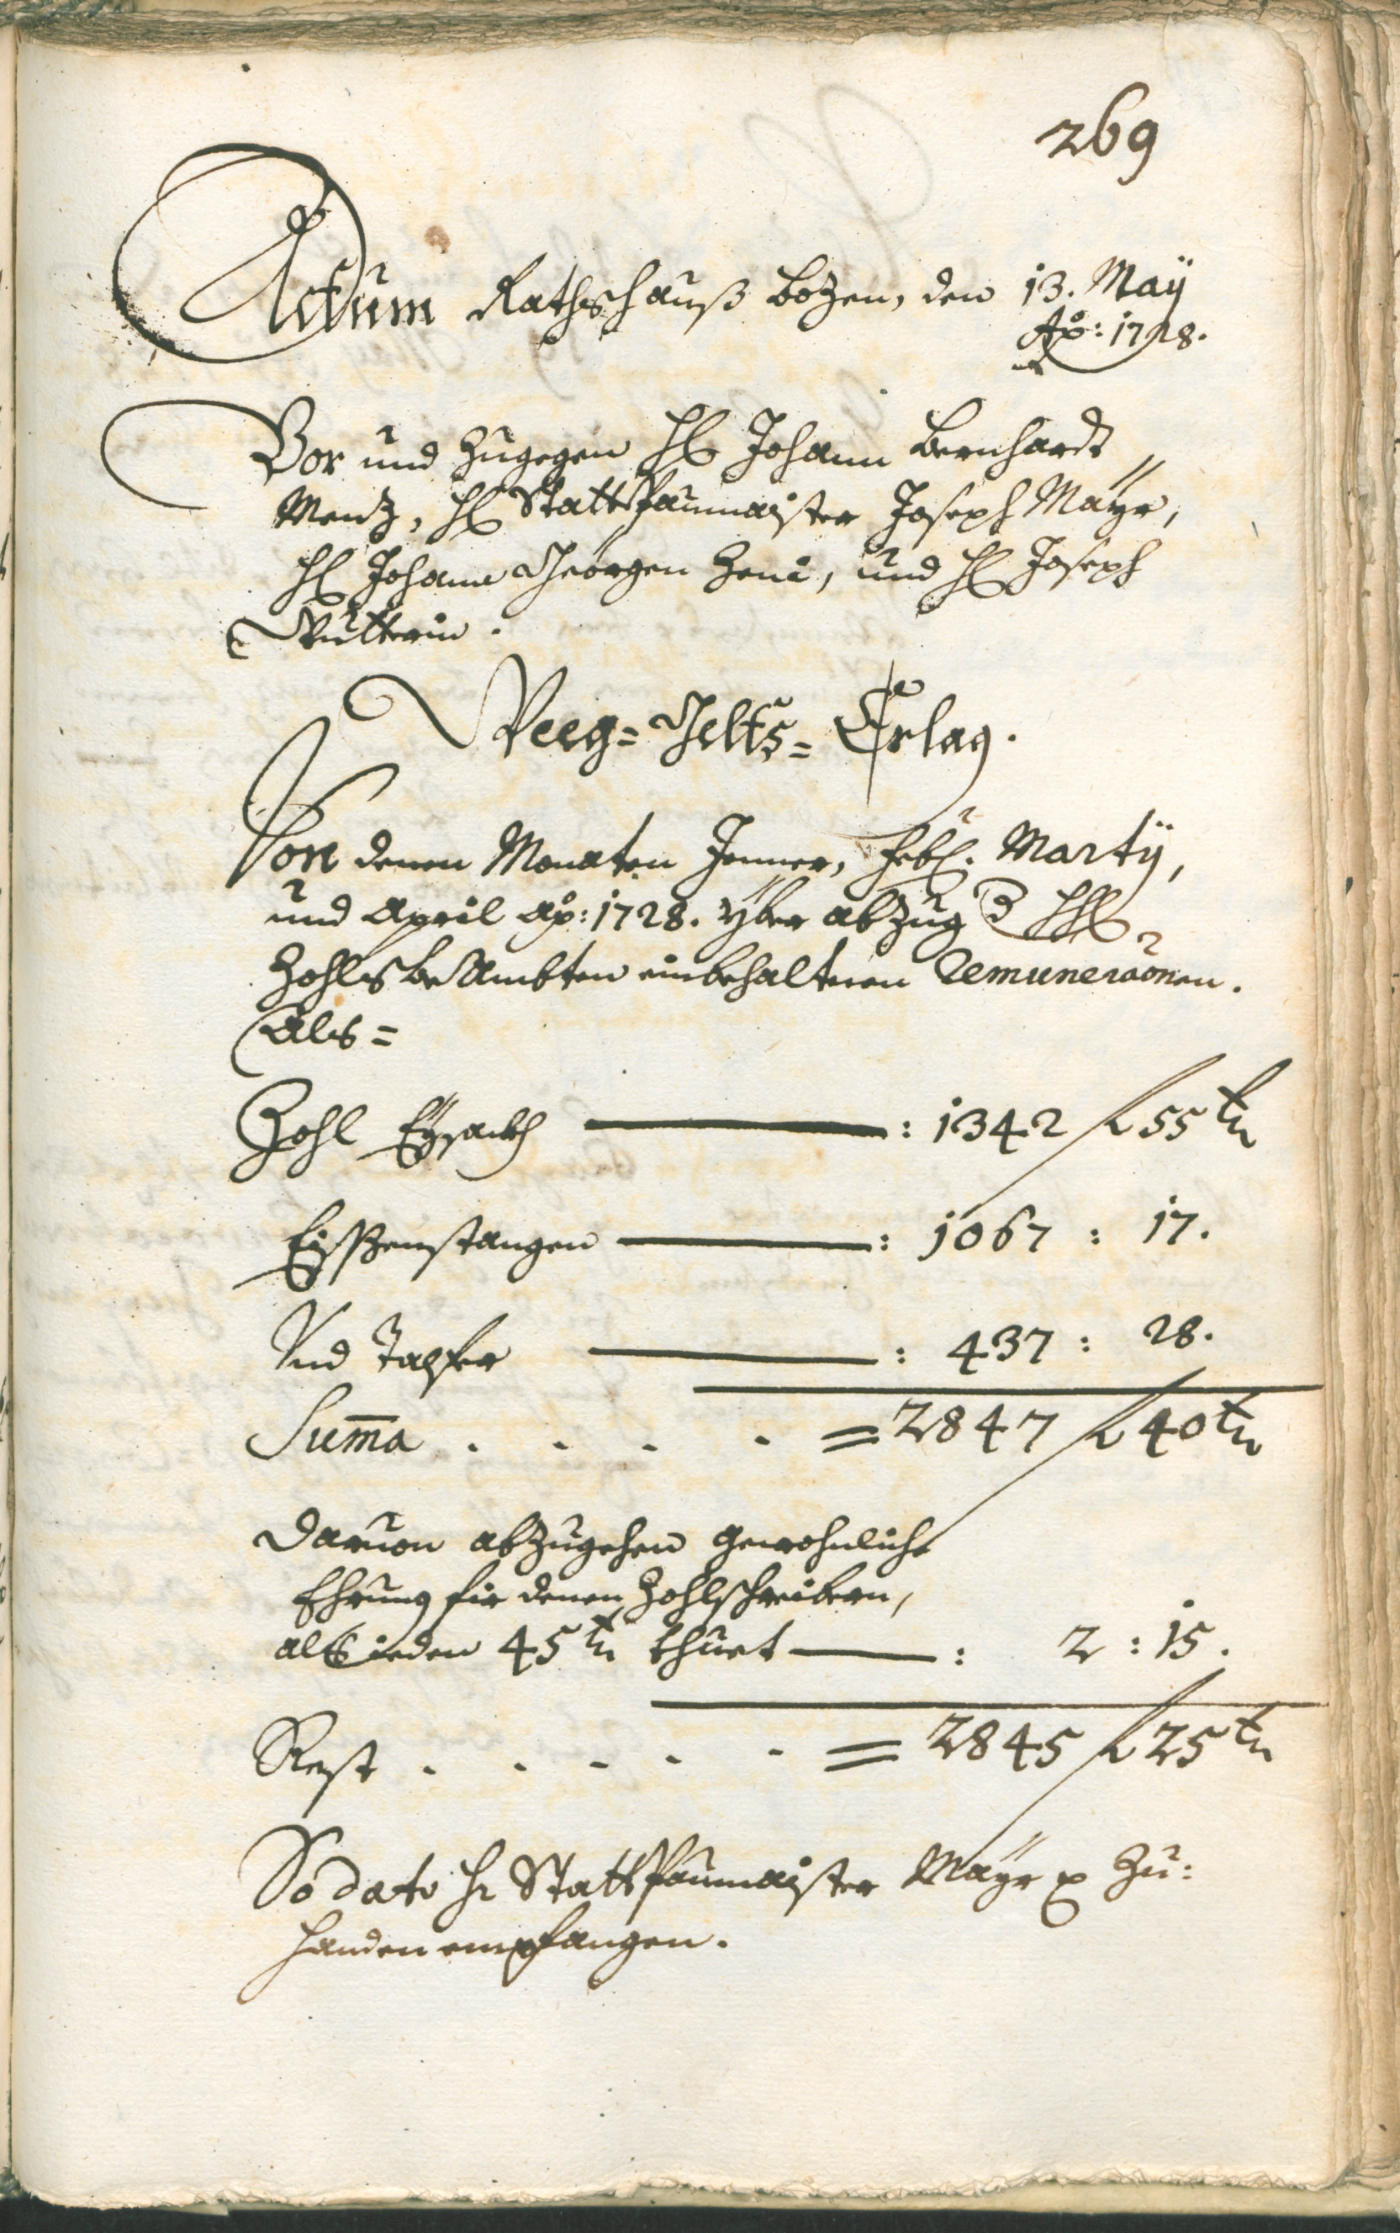 269
Actum Rathshauß Bozen, den 13. Maÿ
Ao: 1728.
Vor und zugegen H Johann Bernhardt
Menz, H Stattpaumaister Joseph Maÿr,
H Johann Georgen Zeni, und H Joseph
Wutterin.
Weeg= Gelts= Erlag.
Von denen Monaten Jenner, Feb. Martÿ,
und April Ao: 1728. yber abzug d HH
Zohls beAmbten einbehaltenen Remuneraonen.
Als=
Zohl Eÿsackh : 1342 f 55 kr
Eÿsßenstangen : 1067 : 17.
Und Talfer : 437 : 28.
Suma . . . . = 2847 f 40 kr
Daruon abzugehen gewohnliche
Ehrung fir denen Zohlschreibern,
alß ieden 45 kr thuet : 2 : 15.
Rest . . . . . = 2845 f 25 kr
So dato Hr Stattpaumaister Maÿr zu:
handen empfangen.